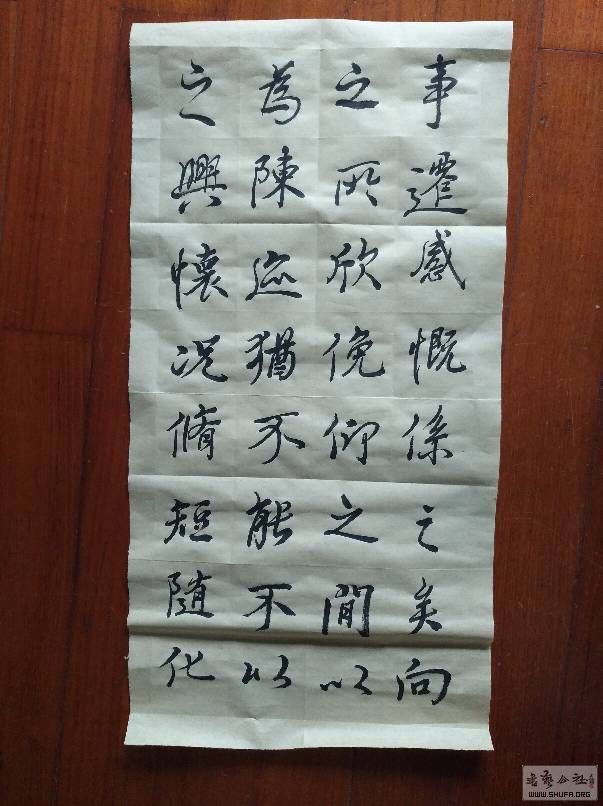 事遷感慨係之矣向
之所欣俛仰之間以
為陳迹猶不能不以
之興懷況脩短隨化
書藝公社
WWW.SHUFA.ORG